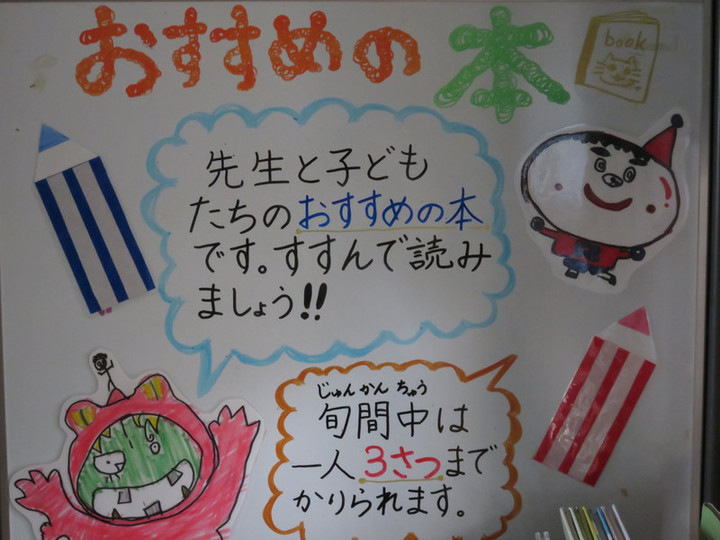 おすすめの本
book
先生と子ども
たちのおすすめの本
です。すすんで読み
ましょう!!
じゅんかんちゅう
旬間中は
一人3さつまで
かりられます。